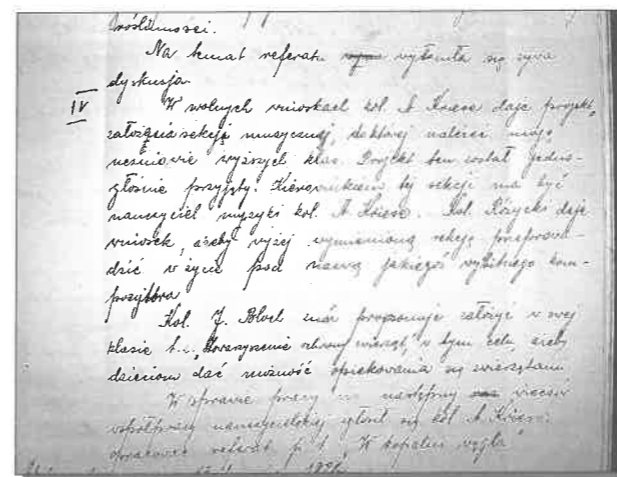 roślinności.
Na temat referatu wyłoniła się żywa
dyskusja.
IV W wolnych wnioskach kol. A Kriese daje projekt,
założenia sekcji muzycznej, do której należeć mają
uczniowie wyższych klas. Projekt ten został jedno-
głośnie przyjęty. Kierownikiem tej sekcji ma być
nauczyciel muzyki kol. A. Kriese. Kol. Różycki daje
wniosek, ażeby wyżej wymienioną sekcję przeprowa-
dzić w życie pod nazwą jakiegoś wybitnego kom-
pozytora
Kol. J. Bloch zaś proponuje założyć w swej
klasie t. z. "Towarzyszenie ochrony zwierząt", w tym celu, ażeby
dzieciom dać możność opiekowania się zwierzętami
W sprawie pracy na następny wieczór
współpracy nauczycielskiej zgłosił się kol A. Kriese:
opracować referat p. t. "W kopalni węgla"